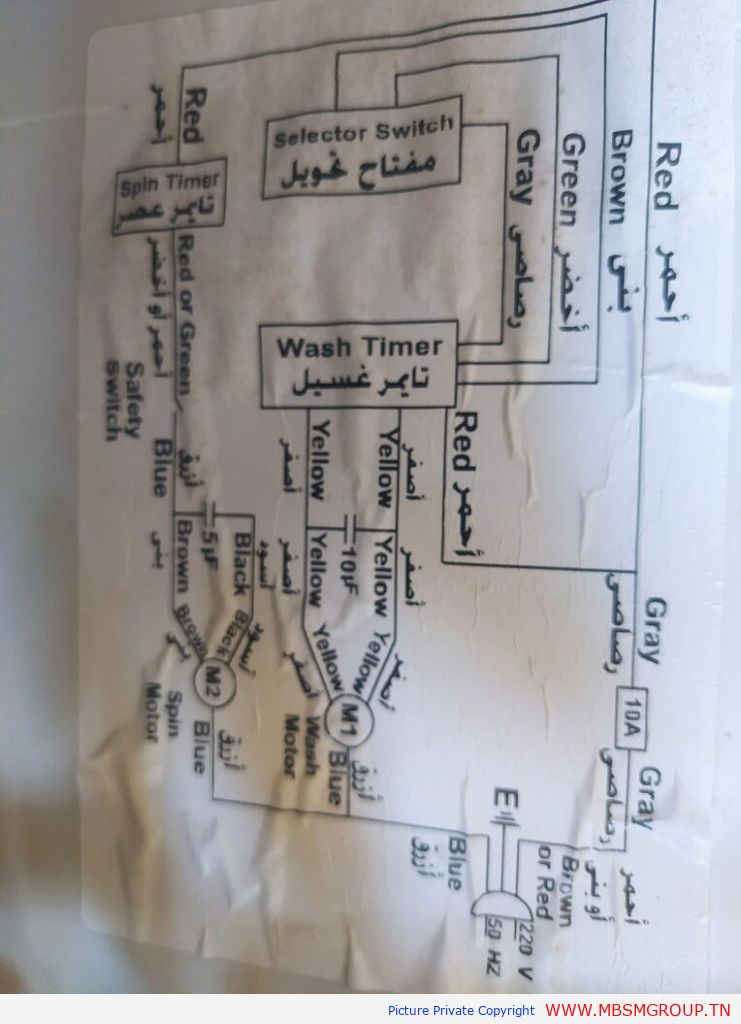 Red أحمر
Brown بني
Green أخضر
Gray رصاصي
Selector Switch
مفتاح تحويل
Red
أحمر
Spin Timer
تايمر عصر
Red or Green
أحمر أو أخضر
Safety
Switch
Wash Timer
تايمر غسيل
Red أحمر
Yellow أصفر
Yellow أصفر
Blue أزرق
5μF
10μF
Black أسود
Black أسود
Brown بني
Brown بني
Yellow أصفر
Yellow أصفر
Yellow أصفر
Yellow أصفر
Gray
رصاصي
10A
Gray
رصاصي
M1
Wash
Motor
Blue أزرق
M2
Spin
Motor
Blue أزرق
E
Blue
أزرق
Brown
or Red
أحمر
أو بني
220 V
50 HZ
Picture Private Copyright WWW.MBSMGROUP.TN